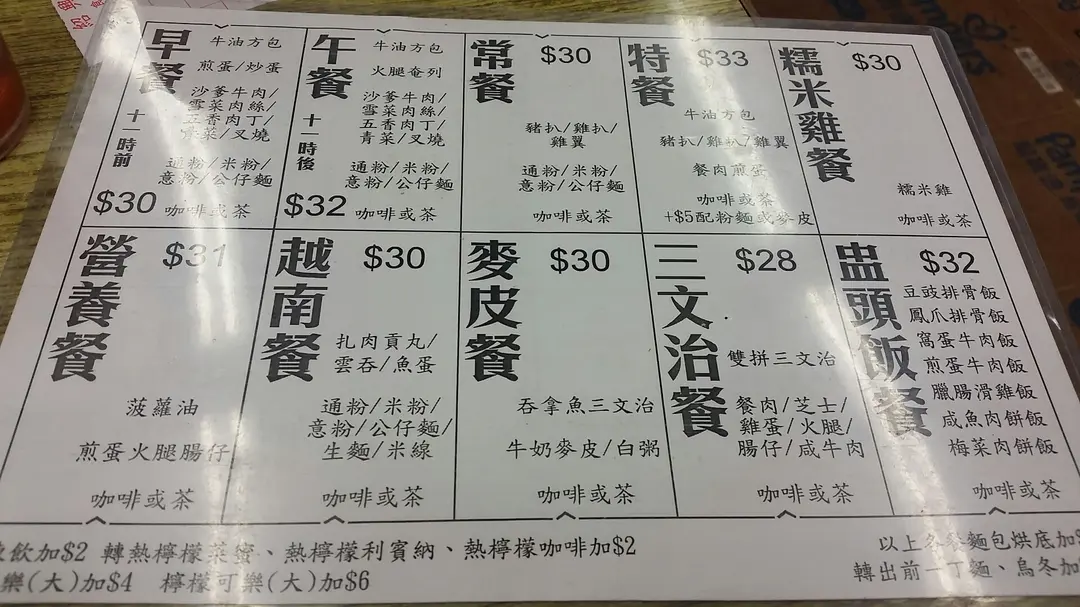 早餐
十一時前
牛油方包
煎蛋/炒蛋
沙爹牛肉/
雪菜肉絲/
五香肉丁/
青菜/叉燒
通粉/米粉/
意粉/公仔麵
$30 咖啡或茶
午餐
十一時後
牛油方包
火腿奄列
沙爹牛肉/
雪菜肉絲/
五香肉丁/
青菜/叉燒
通粉/米粉/
意粉/公仔麵
$32 咖啡或茶
常餐
$30
豬扒/雞扒/
雞翼
通粉/米粉/
意粉/公仔麵
咖啡或茶
特餐
$33
牛油方包
豬扒/雞扒/雞翼
餐肉煎蛋
咖啡或茶
+$5配粉麵或麥皮
糯米雞餐
$30
糯米雞
咖啡或茶
營養餐
$31
菠蘿油
煎蛋火腿腸仔
咖啡或茶
越南餐
$30
扎肉貢丸/
雲吞/魚蛋
通粉/米粉/
意粉/公仔麵/
生麵/米線
咖啡或茶
麥皮餐
$30
吞拿魚三文治
牛奶麥皮/白粥
咖啡或茶
三文治餐
$28
雙拼三文治
餐肉/芝士/
雞蛋/火腿/
腸仔/咸牛肉
咖啡或茶
盅頭飯餐
$32
豆豉排骨飯
鳳爪排骨飯
窩蛋牛肉飯
煎蛋牛肉飯
臘腸滑雞飯
咸魚肉餅飯
梅菜肉餅飯
咖啡或茶
飲加$2 轉熱檸檬菜蜜、熱檸檬利賓納、熱檸檬咖啡加$2
樂(大)加$4 檸檬可樂(大)加$6
以上各餐麵包烘底加
轉出前一丁麵、烏冬加